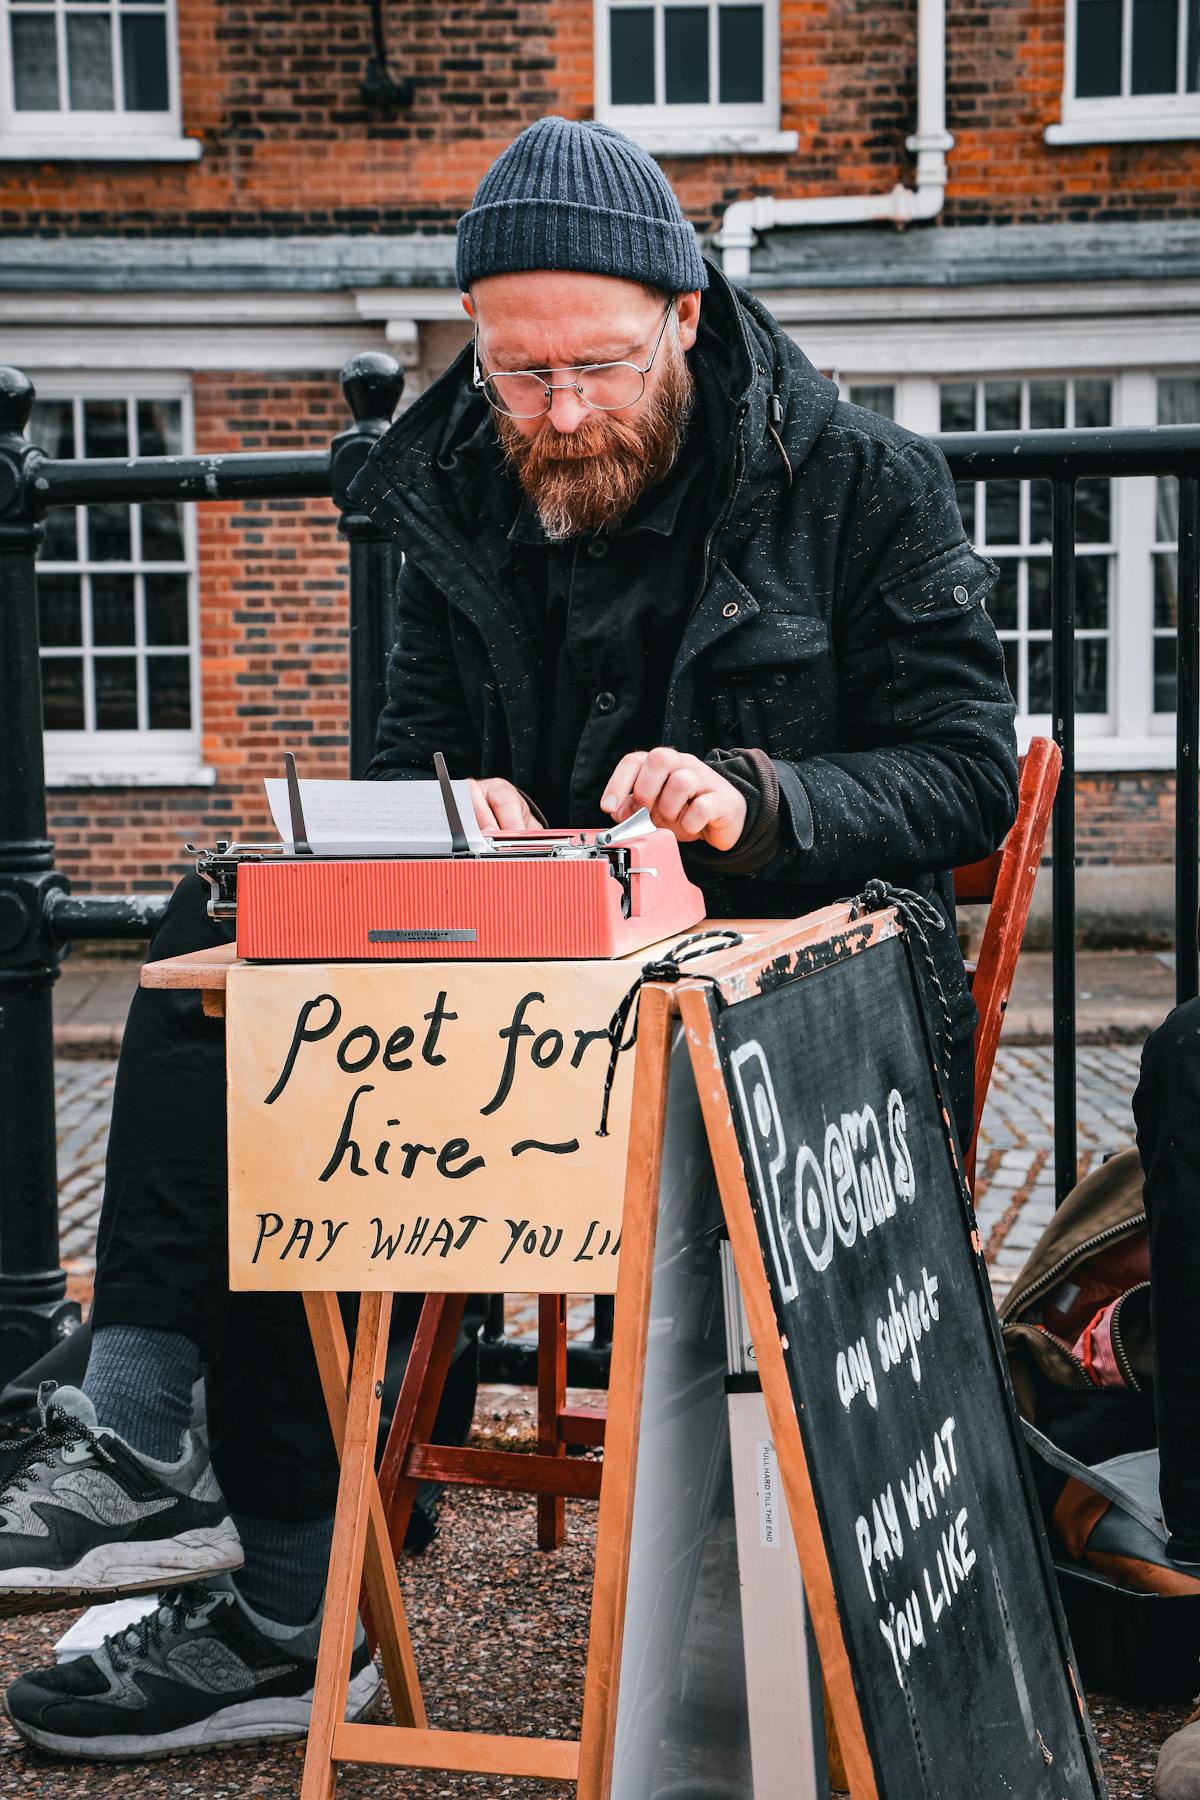 Poet for
hire ~
PAY WHAT YOU LI
Poems
any subject
PAY WHAT
YOU LIKE
PULL HARD TILL THE END